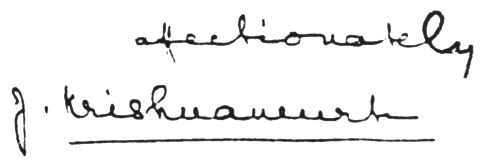 affectionately
J. Krishnamurti